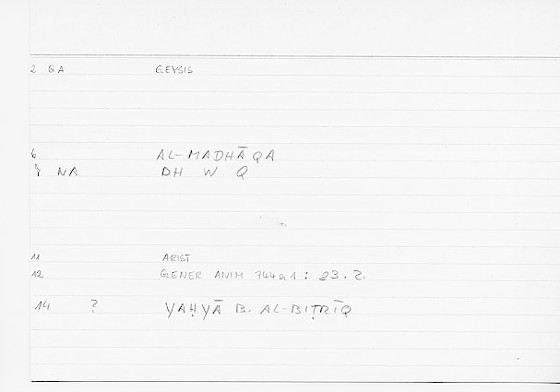 2 GA GEYSIS
6 AL-MADHĀQA
4 NA DH W Q
11 ARIST
12 GENER ANIM 744a1 : 83.2
14 ? YAḤYĀ B. AL-BIṬRĪQ